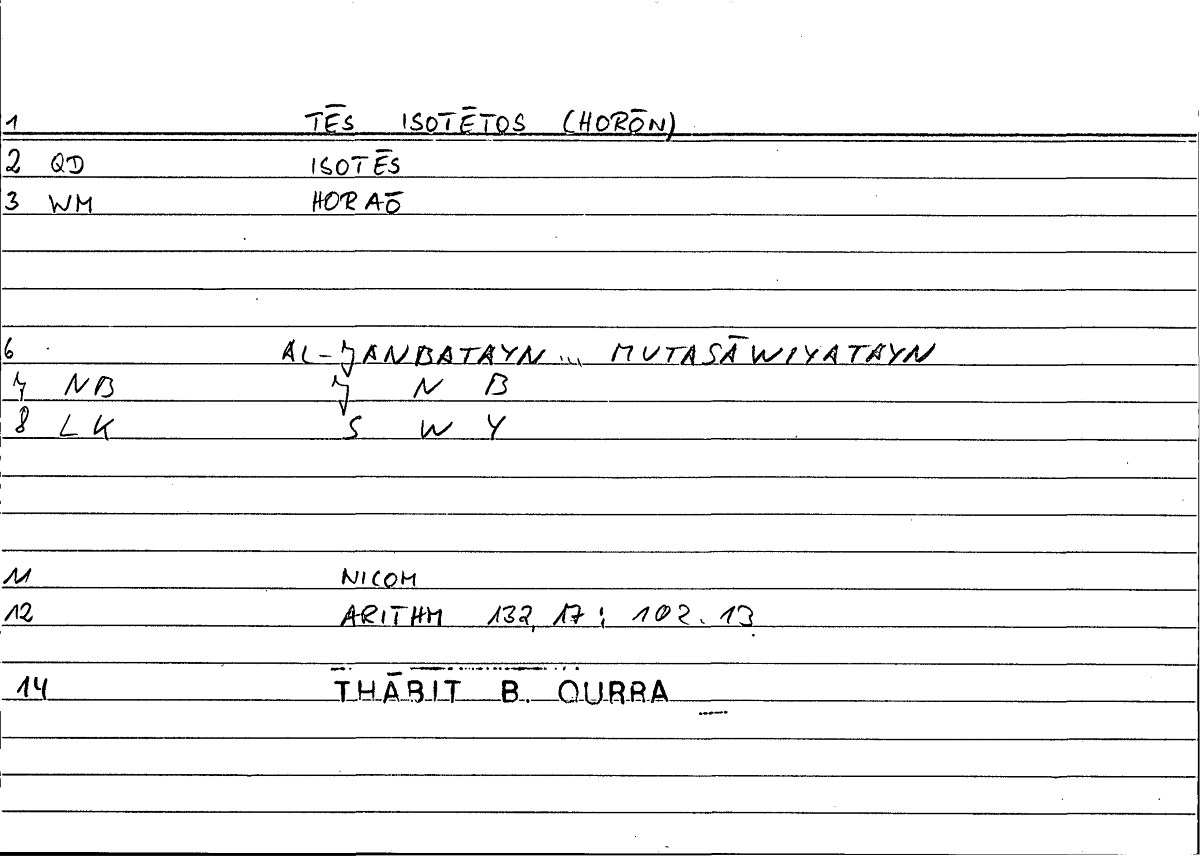 1 TĒS ISOTĒTOS (HORŌN)
2 QD ISOTĒS
3 WM HORAŌ
6 AL-JANBATAYN ... MUTASĀWIYATAYN
7 NB J N B
8 LK S W Y
11 NICOM
12 ARITHM 132, 17 ; 102.13
14 THĀBIT B. QURRA